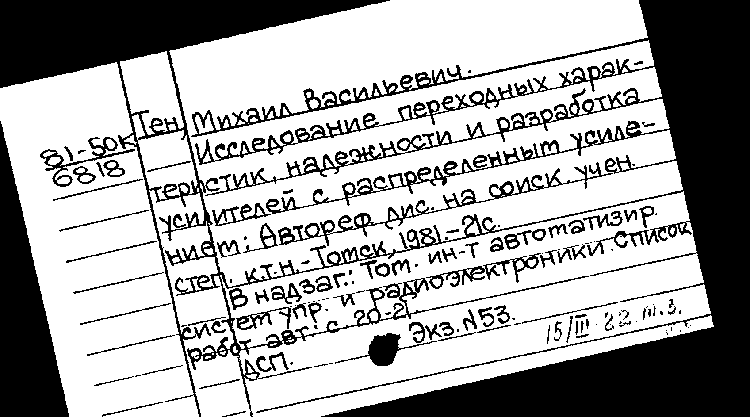 Тен, Михаил Васильевич.
81-50К
6818
Исследование переходных харак-
теристик, надежности и разработка
усилителей с распределенным усиле-
нием: Автореф. дис. на соиск. учен.
степ. к.т.н. - Томск, 1981. - 21с.
В надзаг.: Том. ин-т автоматизир.
систем упр. и радиоэлектроники. Список
работ авт.: с. 20-21.
ДСП. Экз. N53.
15/III 82 т.з.